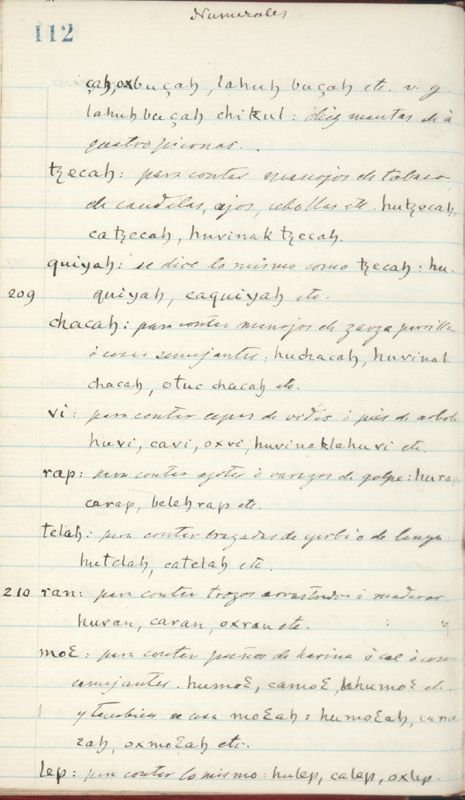 Numerales
112
çaħ, oxbuçaħ, laħuħ buçaħ etc. v. g.
laħuħbuçaħ chikul: diez mantas de à
quatro piernas.
tzecaħ: para contar manojos de tabaco,
de candelas, ajos, cebollas etc. hutzecaħ,
catzecaħ, huvinak tzecaħ.
quiyaħ: se dice lo mismo como tzecaħ: hu-
209 quiyaħ, caquiyaħ etc.
chacaħ: para contar manojos de zarza parrilla
ò cosas semejantes: huchacaħ, huvinak
chacaħ, otuc chacaħ etc.
vi: para contar cepas de vides ò piés de arbole
huvi, cavi, oxvi, huvinaklahuvi etc.
rap: para contar azotes ò varazos de golpe: hurap,
carap, beleħrap etc.
telaħ: para contar brazadas de yerba o de
hutelaħ, catelaħ etc.
210 ran: para contar trozos arrastrados ò maderas
huran, caran, oxran etc.
moƐ: para contar puños de harina ò cal ò cosas
semejantes. humoƐ, camoƐ, etc.
y tambien se usa moƐaħ: humoƐaħ, camo
Ɛaħ, oxmoƐaħ etc.
lep: para contar lo mismo: hulep, calep, oxlep.